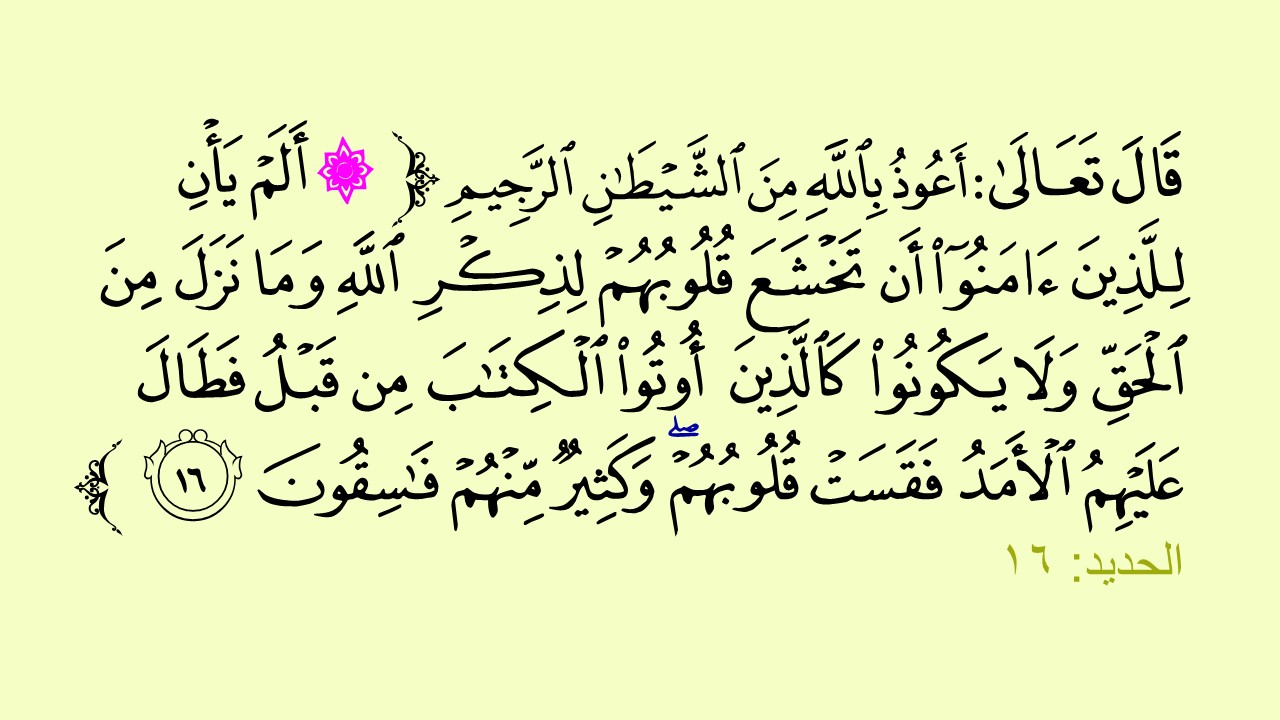 قَالَ تَعَالَىٰ: أَعُوذُ بِٱللَّهِ مِنَ ٱلشَّيْطَٰنِ ٱلرَّجِيمِ ﴿ ۞ أَلَمْ يَأْنِ
لِلَّذِينَ ءَامَنُوٓا۟ أَن تَخْشَعَ قُلُوبُهُمْ لِذِكْرِ ٱللَّهِ وَمَا نَزَلَ مِنَ
ٱلْحَقِّ وَلَا يَكُونُوا۟ كَٱلَّذِينَ أُوتُوا۟ ٱلْكِتَٰبَ مِن قَبْلُ فَطَالَ
عَلَيْهِمُ ٱلْأَمَدُ فَقَسَتْ قُلُوبُهُمْ ۖ وَكَثِيرٌ مِّنْهُمْ فَٰسِقُونَ ١٦ ﴾
الحديد: ١٦